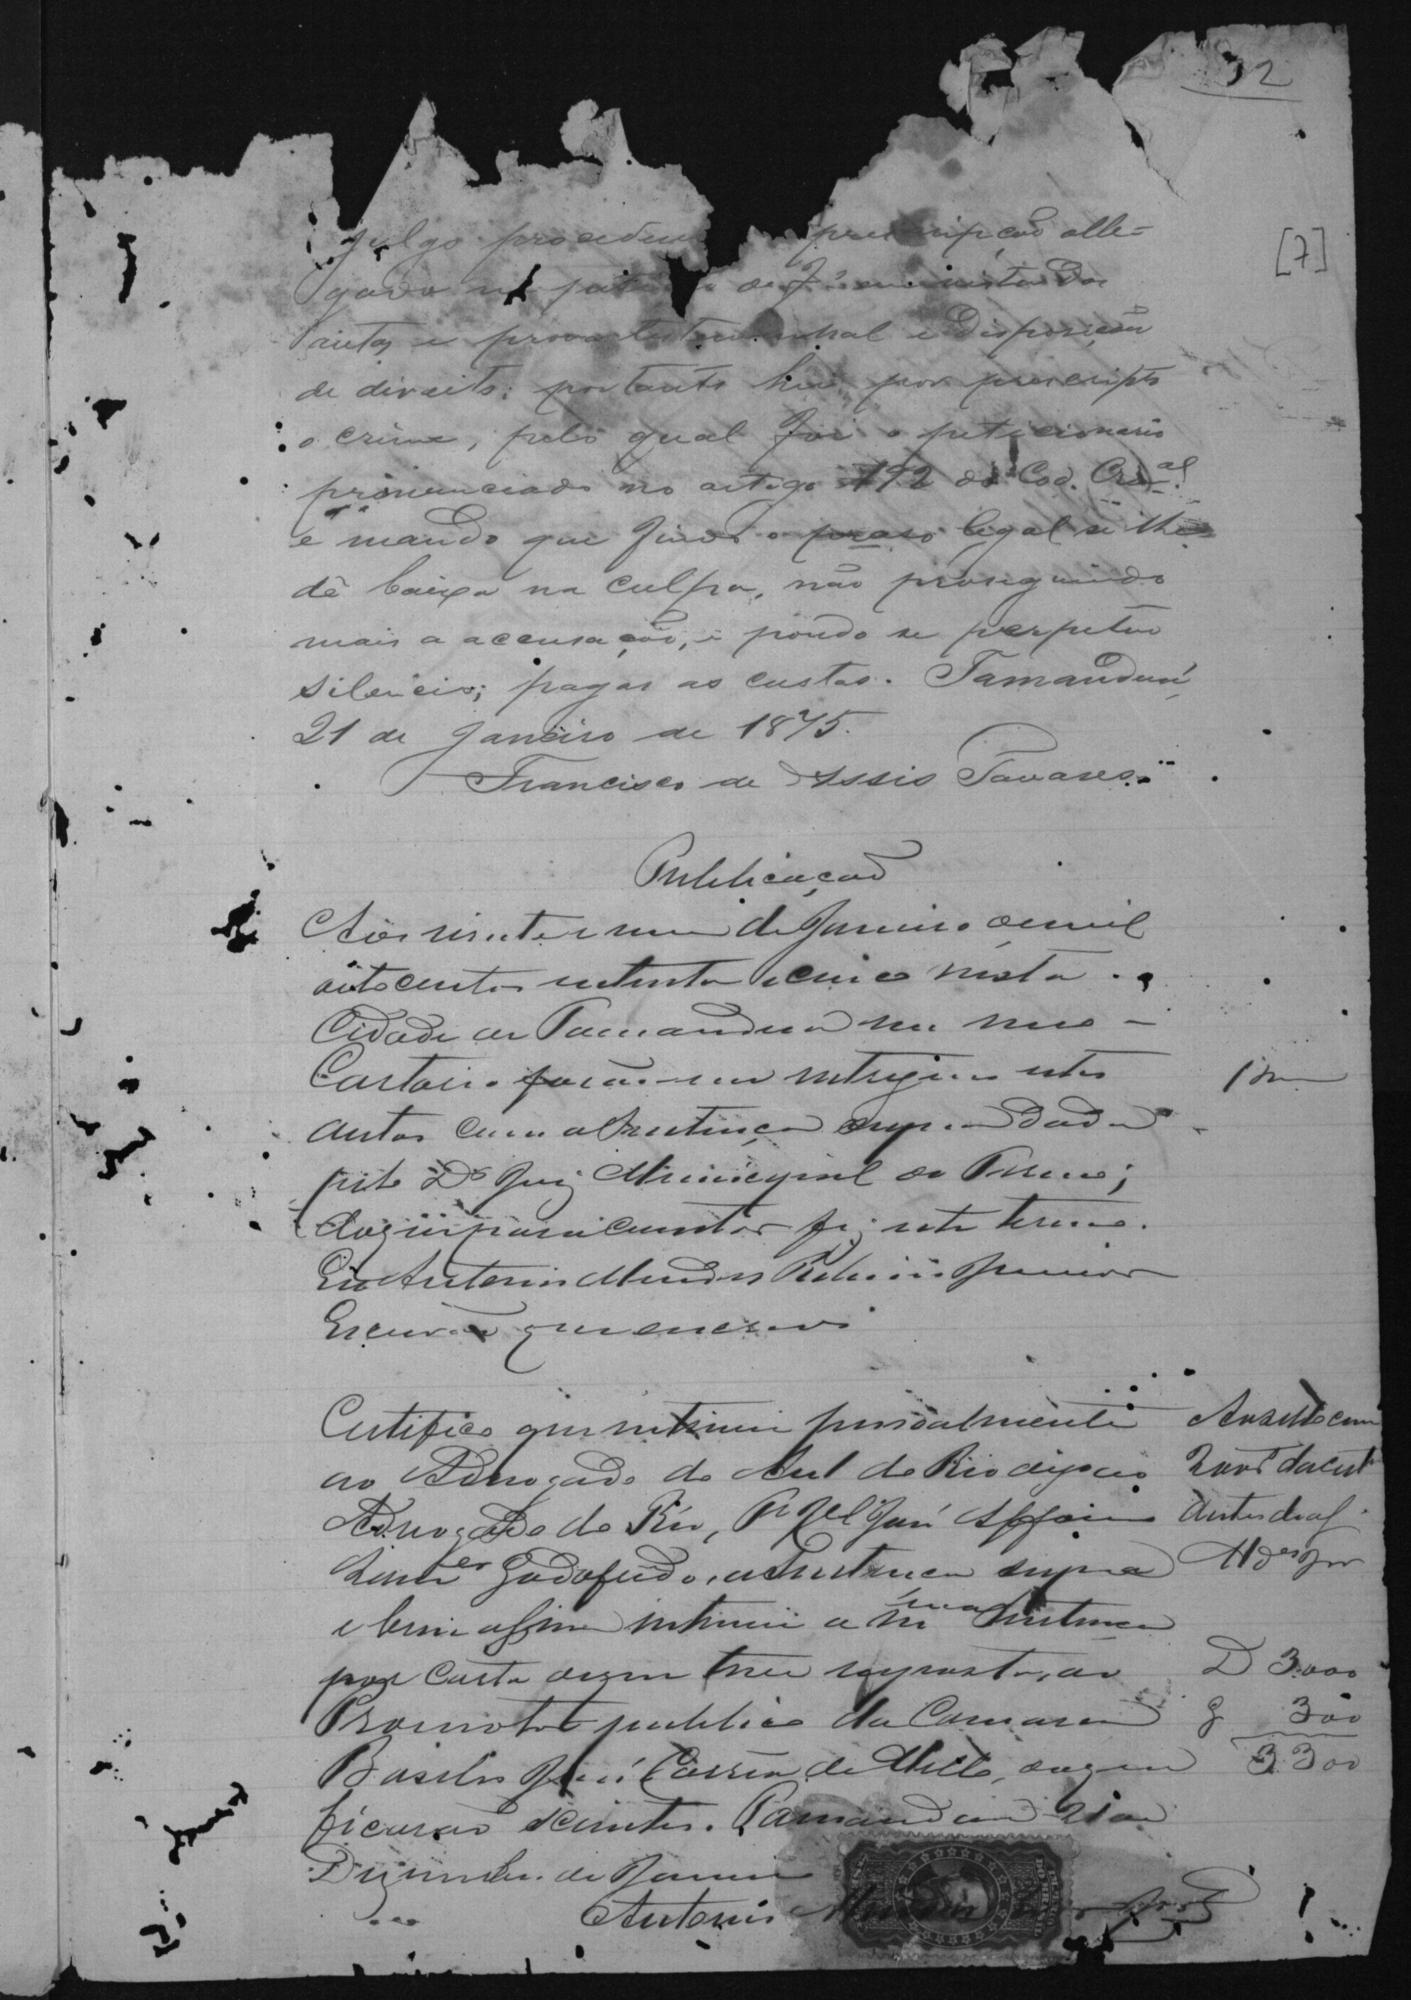 32
[7]
julgo procedente prescripção alle=
gada na petição de f
autos e prova testemunhal e disposição
de direito: portanto hei por prescripto
o crime, pelo qual foi o peticionario
pronunciado no artigo 192 do Cod. Cr.al
e mando que findo o praso legal se lhe
dê baixa na culpa, não proseguindo
mais a accusação, e pondo se perpetuo
silencio; pagas as custas. Tamanduá,
21 de Janeiro de 1875.
Francisco de Assis Tavares.
Publicação
Aos vinte e um de Janeiro de mil
oitocentos setenta e cinco nesta
Cidade de Tamanduá em meo
Cartorio forão me entregues estes
autos com a sentença supra dada
pelo Dr Juiz Municipal do Termo;
do que para constar fiz este termo.
Eu Antonio Mendes Ribeiro Junior
Escrivão que escrevi
Certifico que intimei pessoalmente
ao Advogado do
Advogado do Réo, José Affonso
Godofredo, a sentença supra
e bem assim intimei a mma sentença
por carta de que tive resposta, ao
Promotor publico da Comarca
Basilio José Corrêa de Mello, do que
ficarão scientes. Tamanduá 21 de
de Janeiro
Antonio Mendes
D 3000
G 300
3300